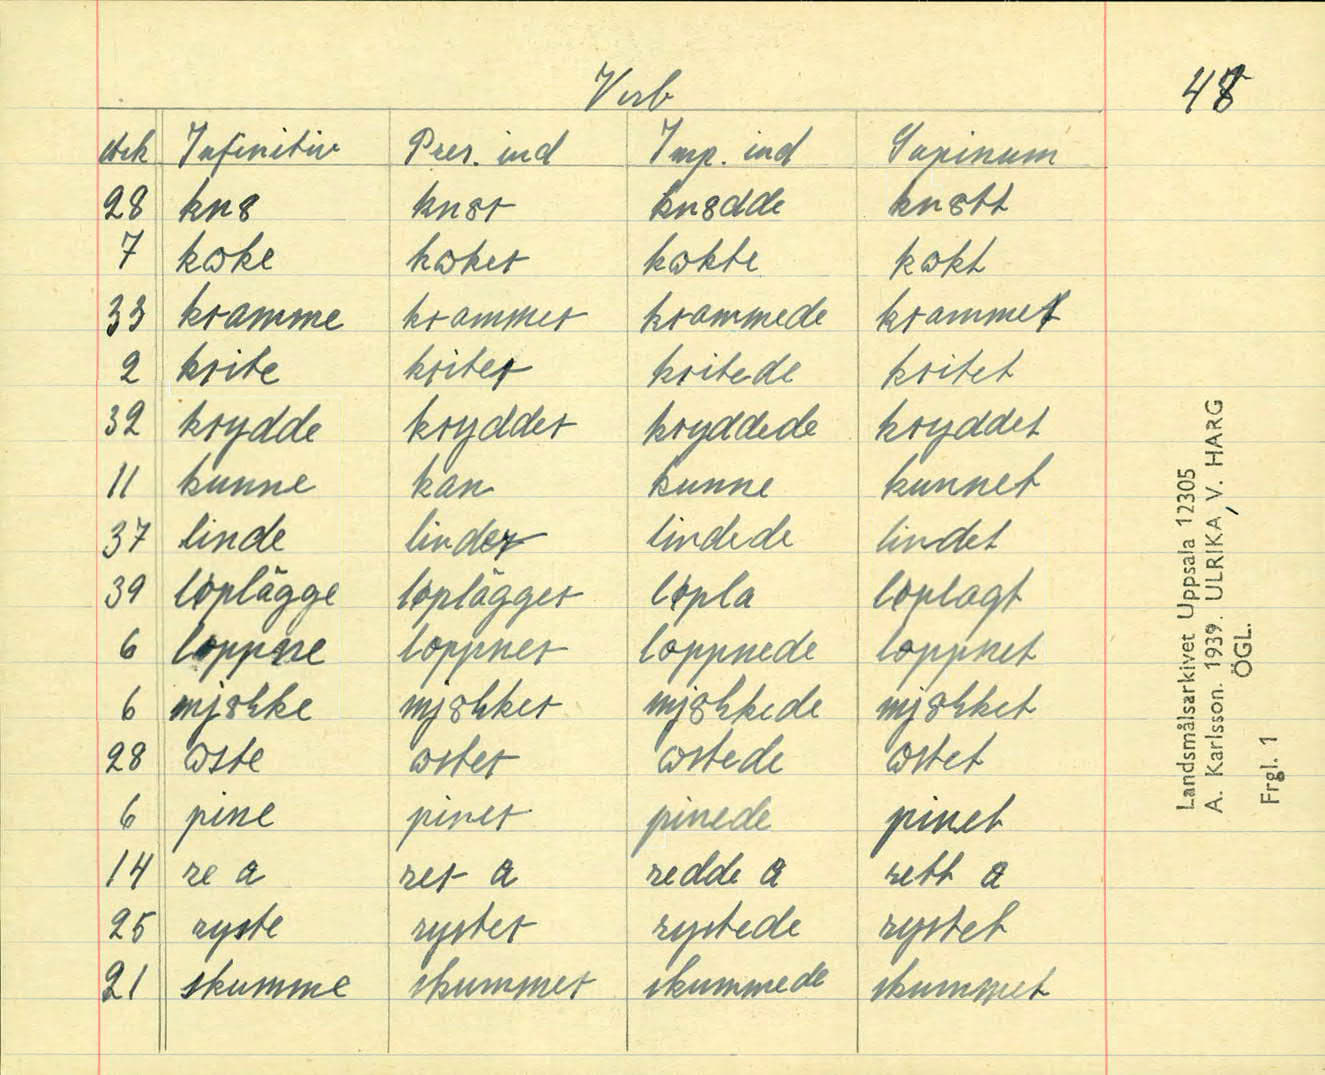 Verb
48
Infinitiv Pres. ind Imp. ind Supinum
28 kn8 kn8r kn8dde kn8tt
7 kωke kωker kωkte kωkt
33 kramme krammer krammede krammet
2 krite kriter kritede kritet
32 krydde krydder kryddede kryddet
11 kunne kan kunne kunnet
37 linde linder lindede lindet
39 loplägge loplägger lopla loplagt
6 loppne loppner loppnede loppnet
6 mj8lke mj8lker mj8lkede mj8lket
28 ωste ωster ωstede ωstet
6 pine piner pinede pinet
14 re a rer a redde a rett a
25 ryste ryster rystede rystet
21 skumme skummer skummede skummet
Landsmålsarkivet Uppsala 12305
A. Karlsson. 1939. ULRIKA, V. HARG
ÖGL.
Frgl. 1